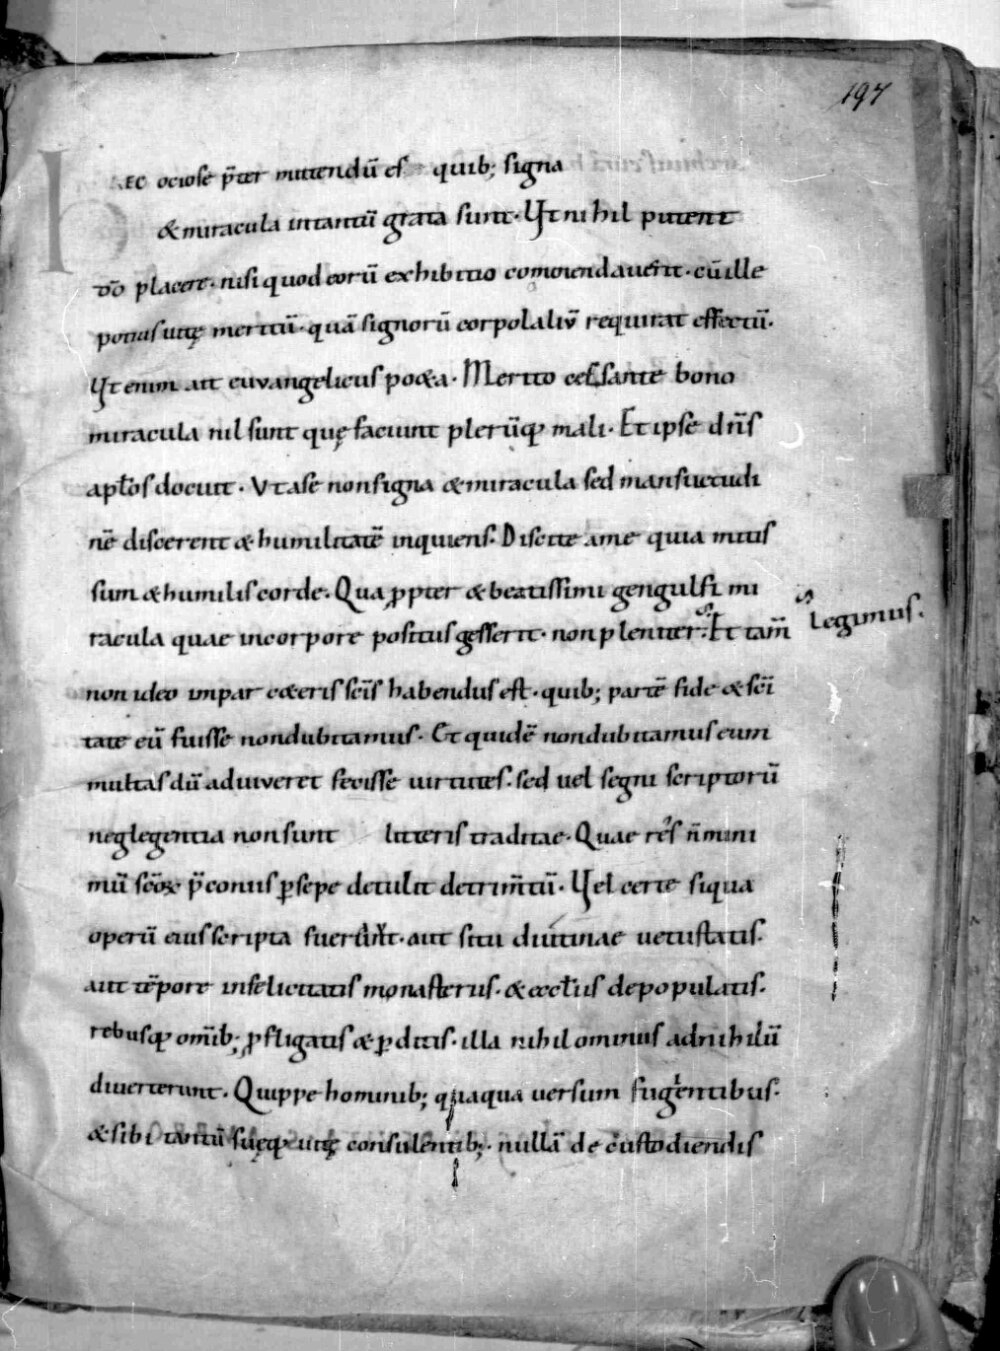 197
HAEC ociose p̄ter mittendū ē s quib; signa
& miracula intantū grata sunt· Ut nihil putent
dō placere· nisi quod eorū exhibitio comendauerit· cū ille
potius uitę meritū· quā signorū corporaliū requirat effectū·
Ut enim ait euuangelicus poeta· Merito cessante bono
miracula nil sunt quę faciunt plerūq; mali· Et ipse dn̄s
apl̄os docuit· Ut a se non signa & miracula sed mansuetudi
nē discerent & humilitatē inquiens· Discite a me quia mitis
sum & humilis corde· Qua ꝓpter & beatissimi gengulfi mi
racula quae in corpore positus gesserit· non pleniter· Et tam̄ legimus·
non ideo impar ceteris sc̄is habendus est· quib; partē fide & sc̄i
tate eū fuisse non dubitamus· Et quidē non dubitamus eum
multas dū adviveret fecisse uirtutes· sed uel segni scriptorū
neglegentia non sunt litteris traditae· Quae res n̄ mini
mū sc̄oꝝ p̄coniis ꝑsepe detulit detrim̄tū· Uel certe siqua
operū eius scripta fuerunt· aut situ diutinae uetustatis·
aut tēpore infelicitatis monasteriis· & aeccl̄iis depopulatis·
rebusq; om̄ib; ꝓfligatis & ꝑditis· illa nihilominus ad nihilū
diuerterunt· Quippe hominib; quaqua uersum fugientibus·
& sibi tantū suęq; uitę consulentib;· nullā de custodiendis